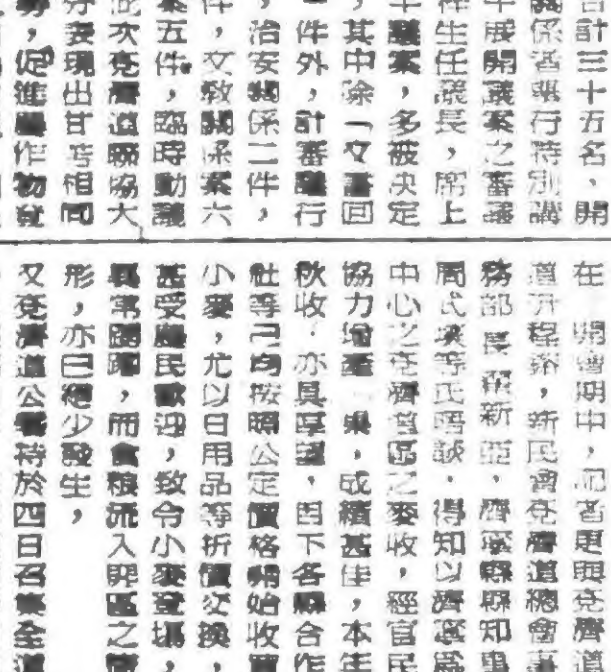 計三十五名、開
關係者舉行特別講
展開議案之審議
生任議長，席上
議案，多被决定
，其中除一文書回
件外，計審議行
，治安關係二件，
件，文敎關係案六
案五件，臨時動議
次兗濟道聯協大
分表現出甘苦相同
，促進農作物發
在　開會期中，記者更與兗濟道
道尹程，新民會兗濟道總會事
務部長新亞，濟寧縣縣知事
周式等氏晤談，得知以濟寧爲
中心之兗濟道區之麥收，經官民
協力增產果，成績甚佳，本年
秋收，亦具厚望，目下各縣合作
社等已均按照公定價格開始收買
小麥，尤以日用品等折價交換，
甚受農民歡迎，致令小麥登場，
異常踴躍，而食粮流入匪區之
形，亦已極少發生，
又兗濟道公署特於四日召集全道